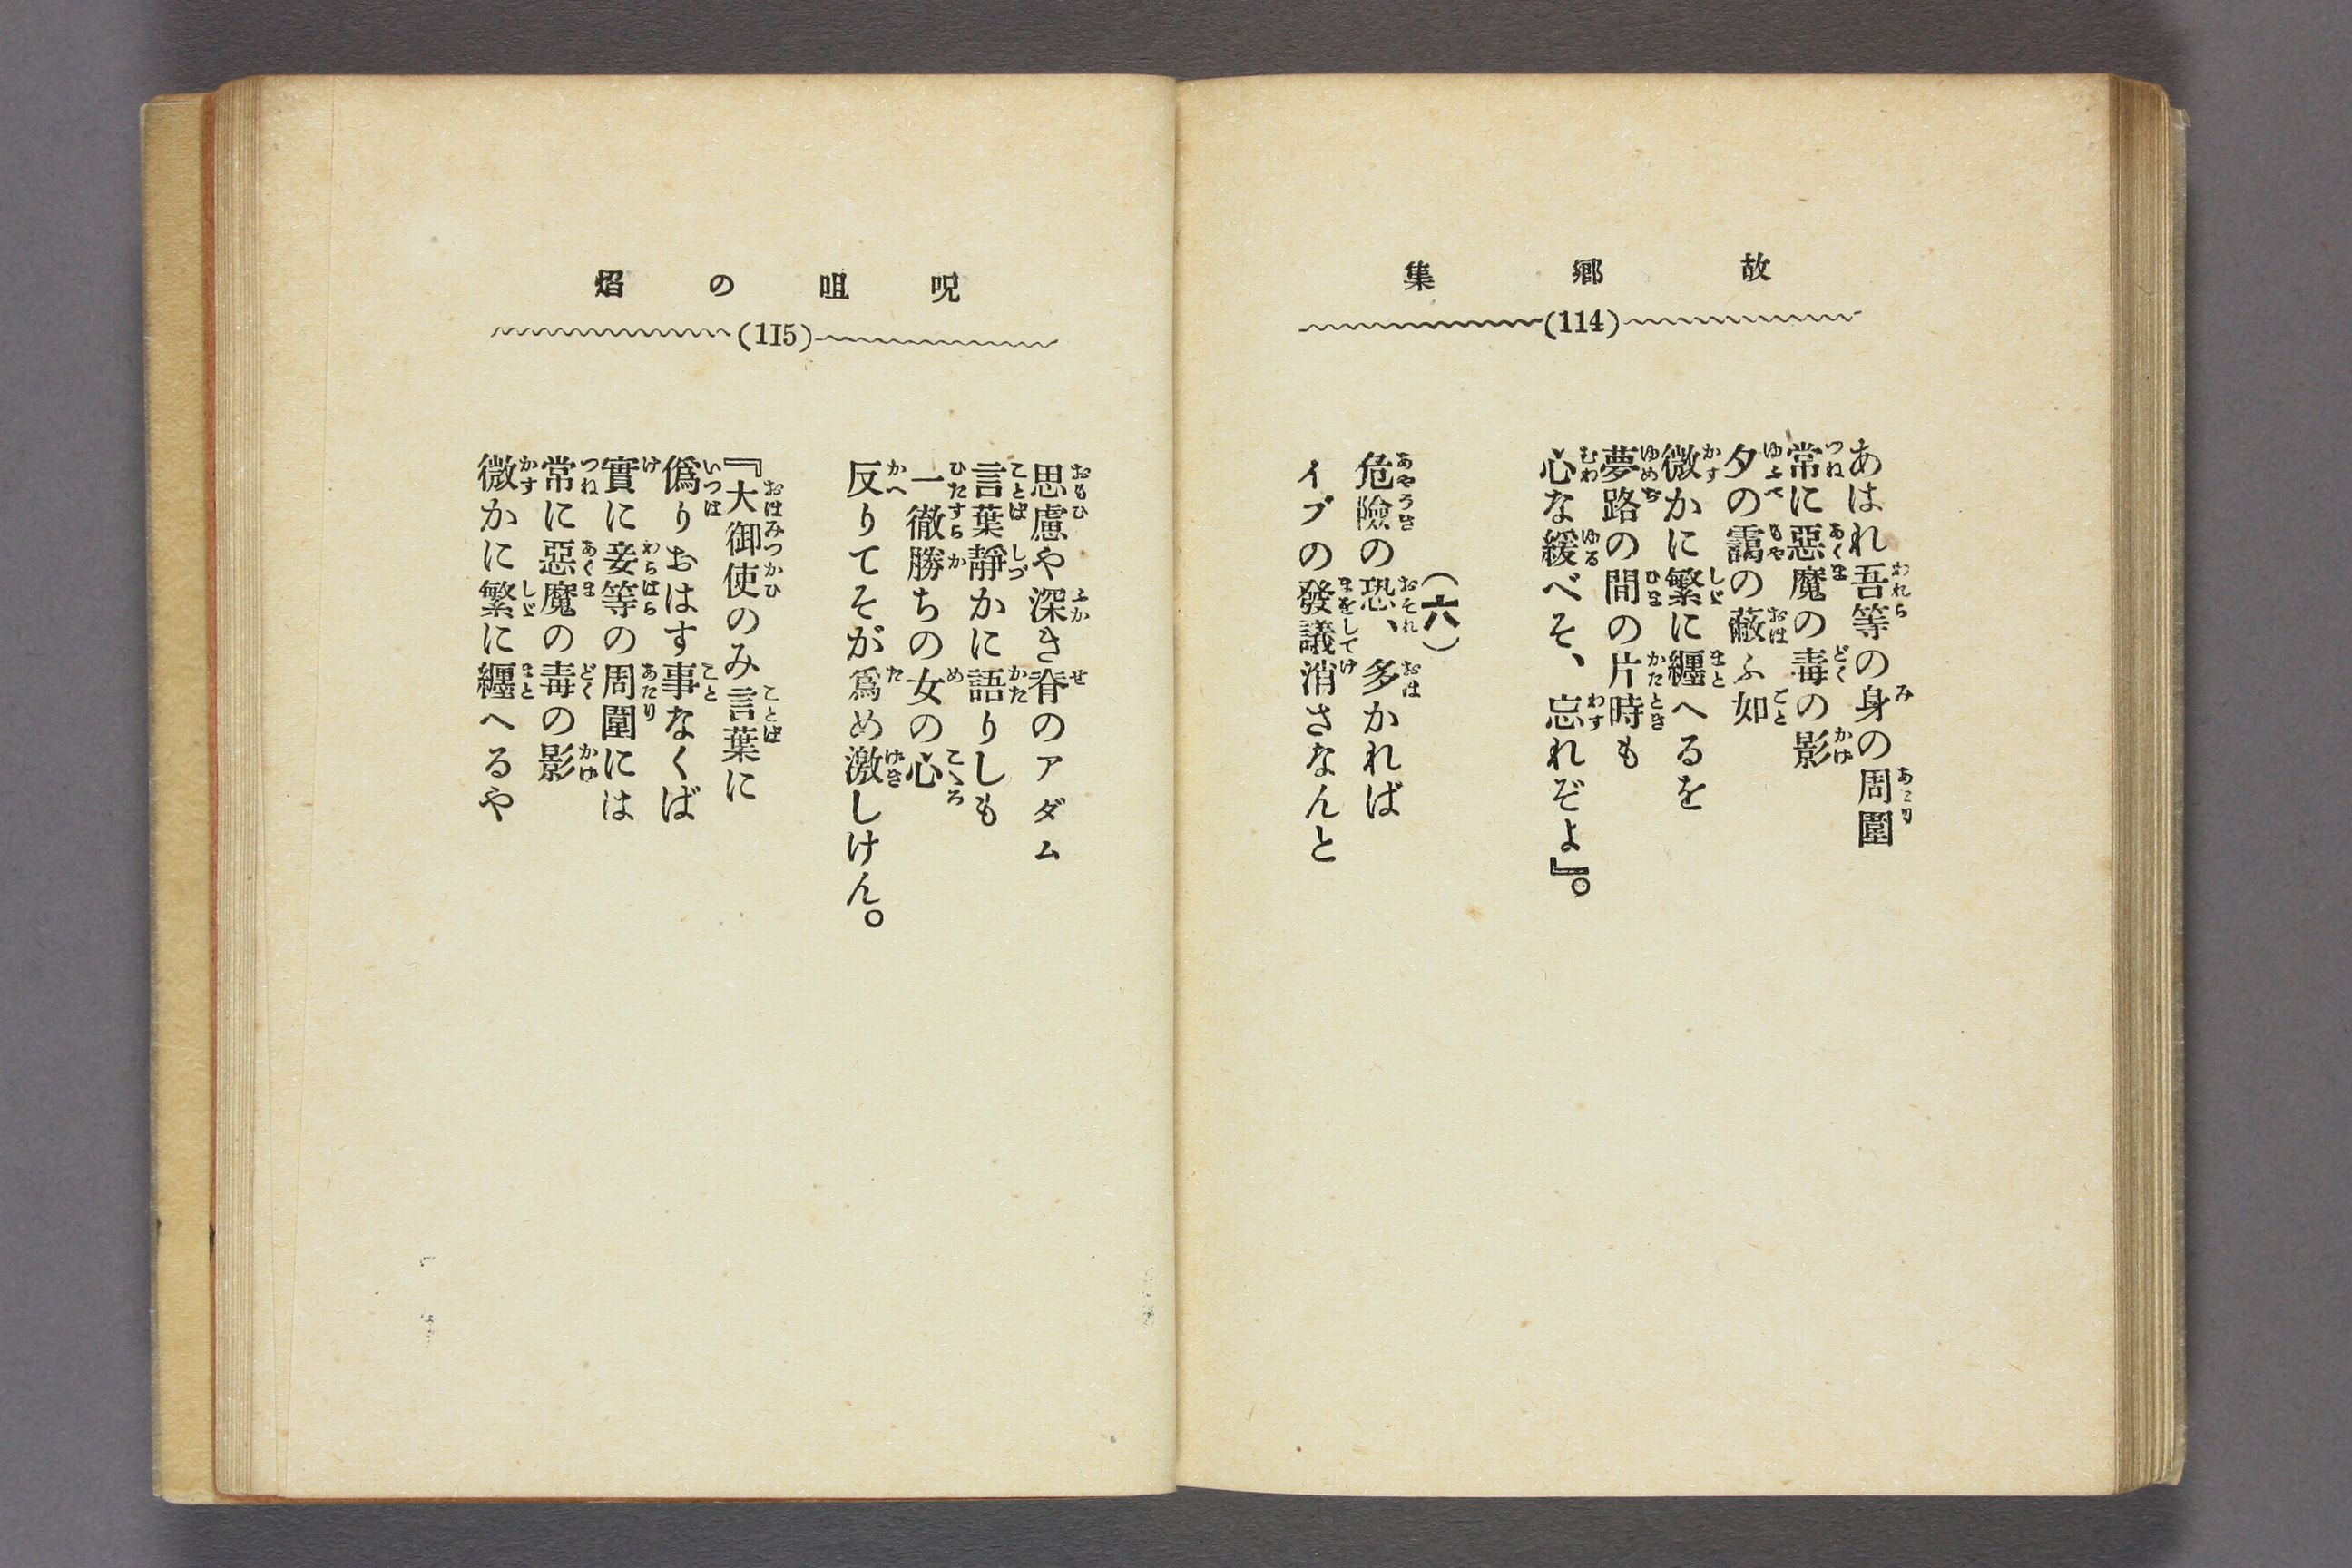 故郷集
(114)
あはれ吾等の身の周圍
常に惡魔の毒の影
夕の靄の蔽ふ如
微かに繁に纏へるを
夢路の間の片時も
心な緩べそ、忘れぞよ』。
(六)
危險の恐、多かれば
イブの發議消さなんと
呪咀の焰
(115)
思慮や深き脊のアダム
言葉靜かに語りしも
一徹勝ちの女の心
反りてそが爲め激しけん。
『大御使のみ言葉に
僞りおはす事なくば
實に妾等の周圍には
常に惡魔の毒の影
微かに繁に纏へるや